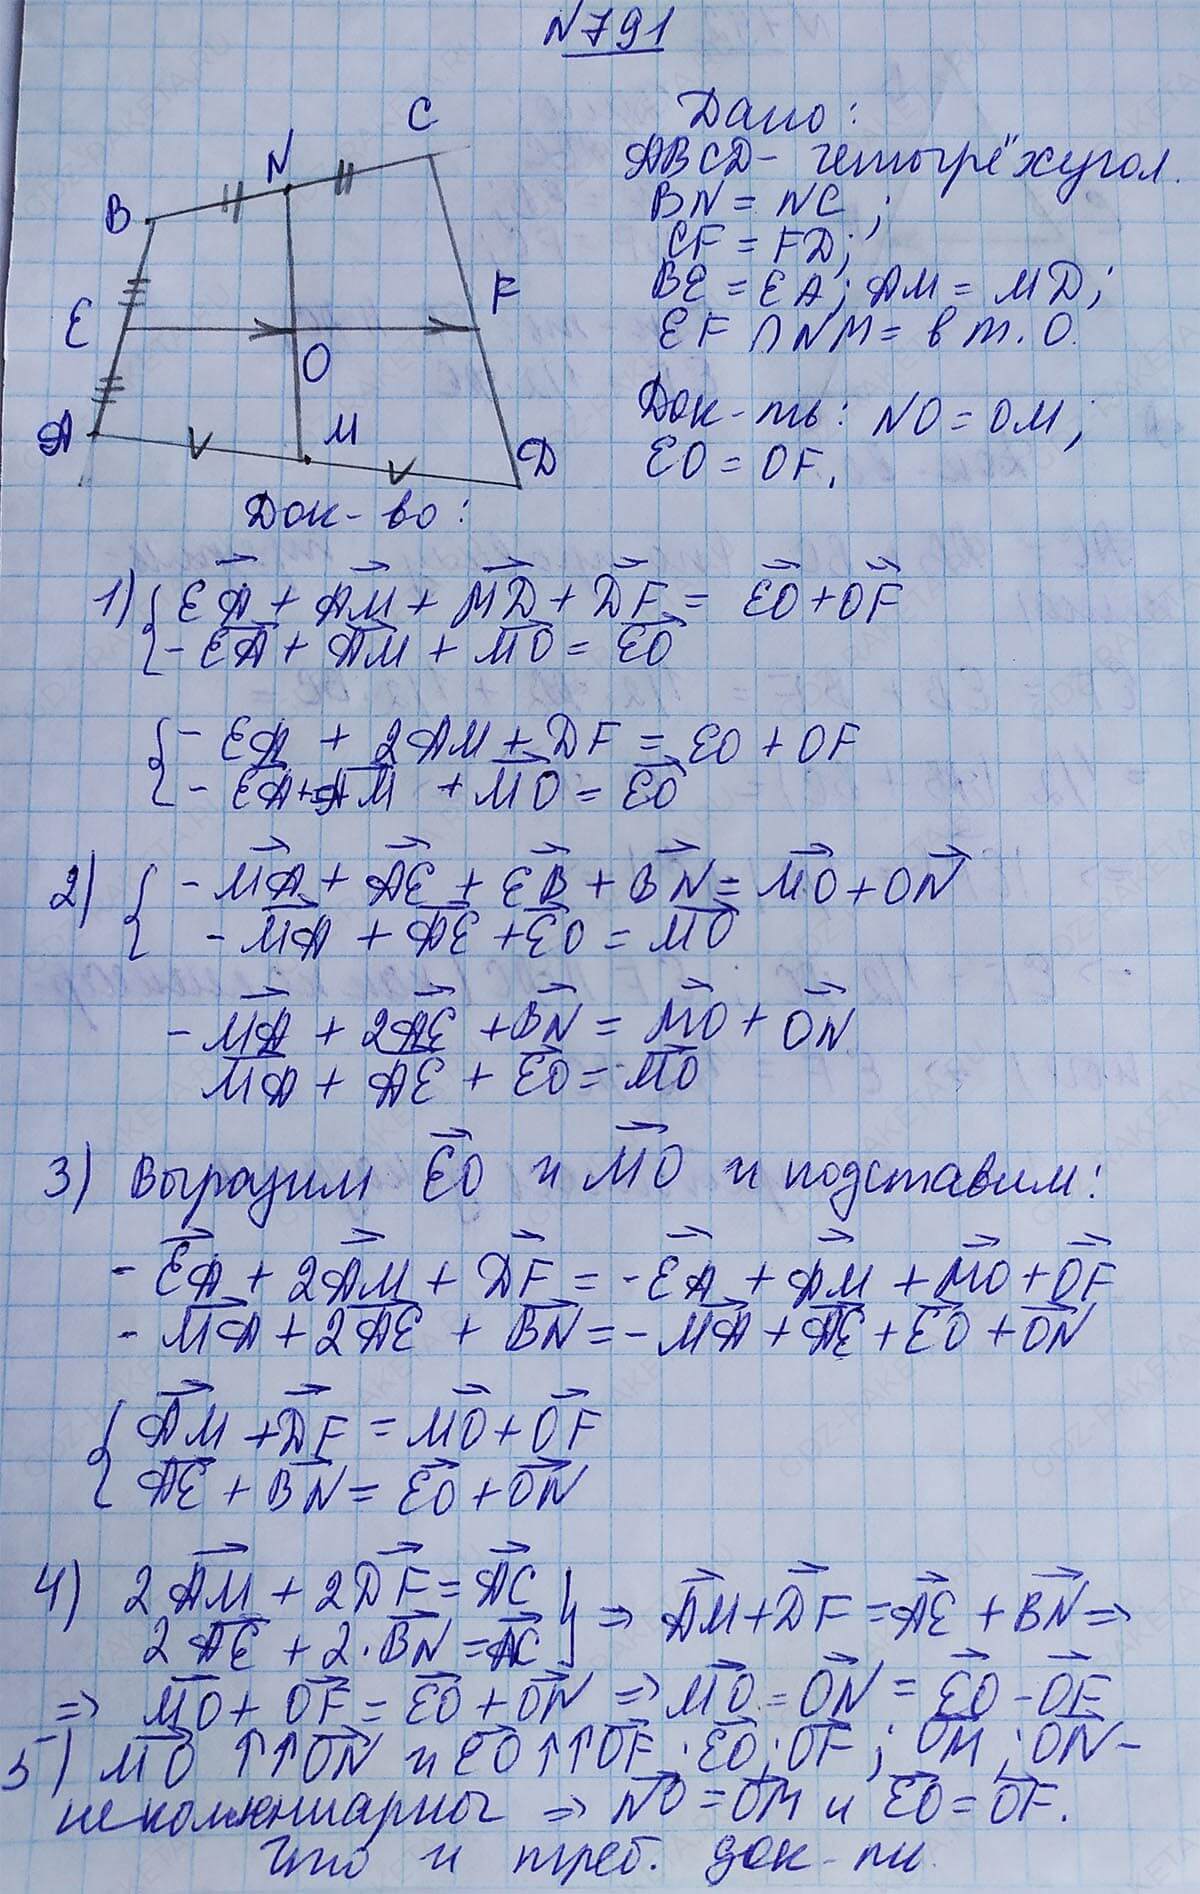 N791
Дано:
ABCD - четырёхугол.
BN = NC;
CF = FD;
BE = EA; AM = MD;
EF ∩ NM = в т. O.
Док-ть: NO = OM;
EO = OF.
C
N
B
F
E
O
A
M
D
Док-во:
1) { EA + AM + MD + DF = EO + OF
{ - EA + AM + MO = EO
{ - EA + 2AM + DF = EO + OF
{ - EA + AM + MO = EO
2) { - MA + AE + EB + BN = MO + ON
- MA + AE + EO = MO
- MA + 2AE + BN = MO + ON
MA + AE + EO = MO
3) Выразим EO и MO и подставим:
- EA + 2AM + DF = - EA + AM + MO + OF
- MA + 2AE + BN = - MA + AE + EO + ON
{ AM + DF = MO + OF
AE + BN = EO + ON
4) 2AM + 2DF = AC
2AE + 2·BN = AC } ⇒ AM + DF = AE + BN ⇒
⇒ MO + OF = EO + ON ⇒ MO - ON = EO - OF
5) MO ↑↑ ON и EO ↑↑ OF; EO; OF; OM; ON -
не коллениарног ⇒ NO = OM и EO = OF.
Что и треб. док-ти.